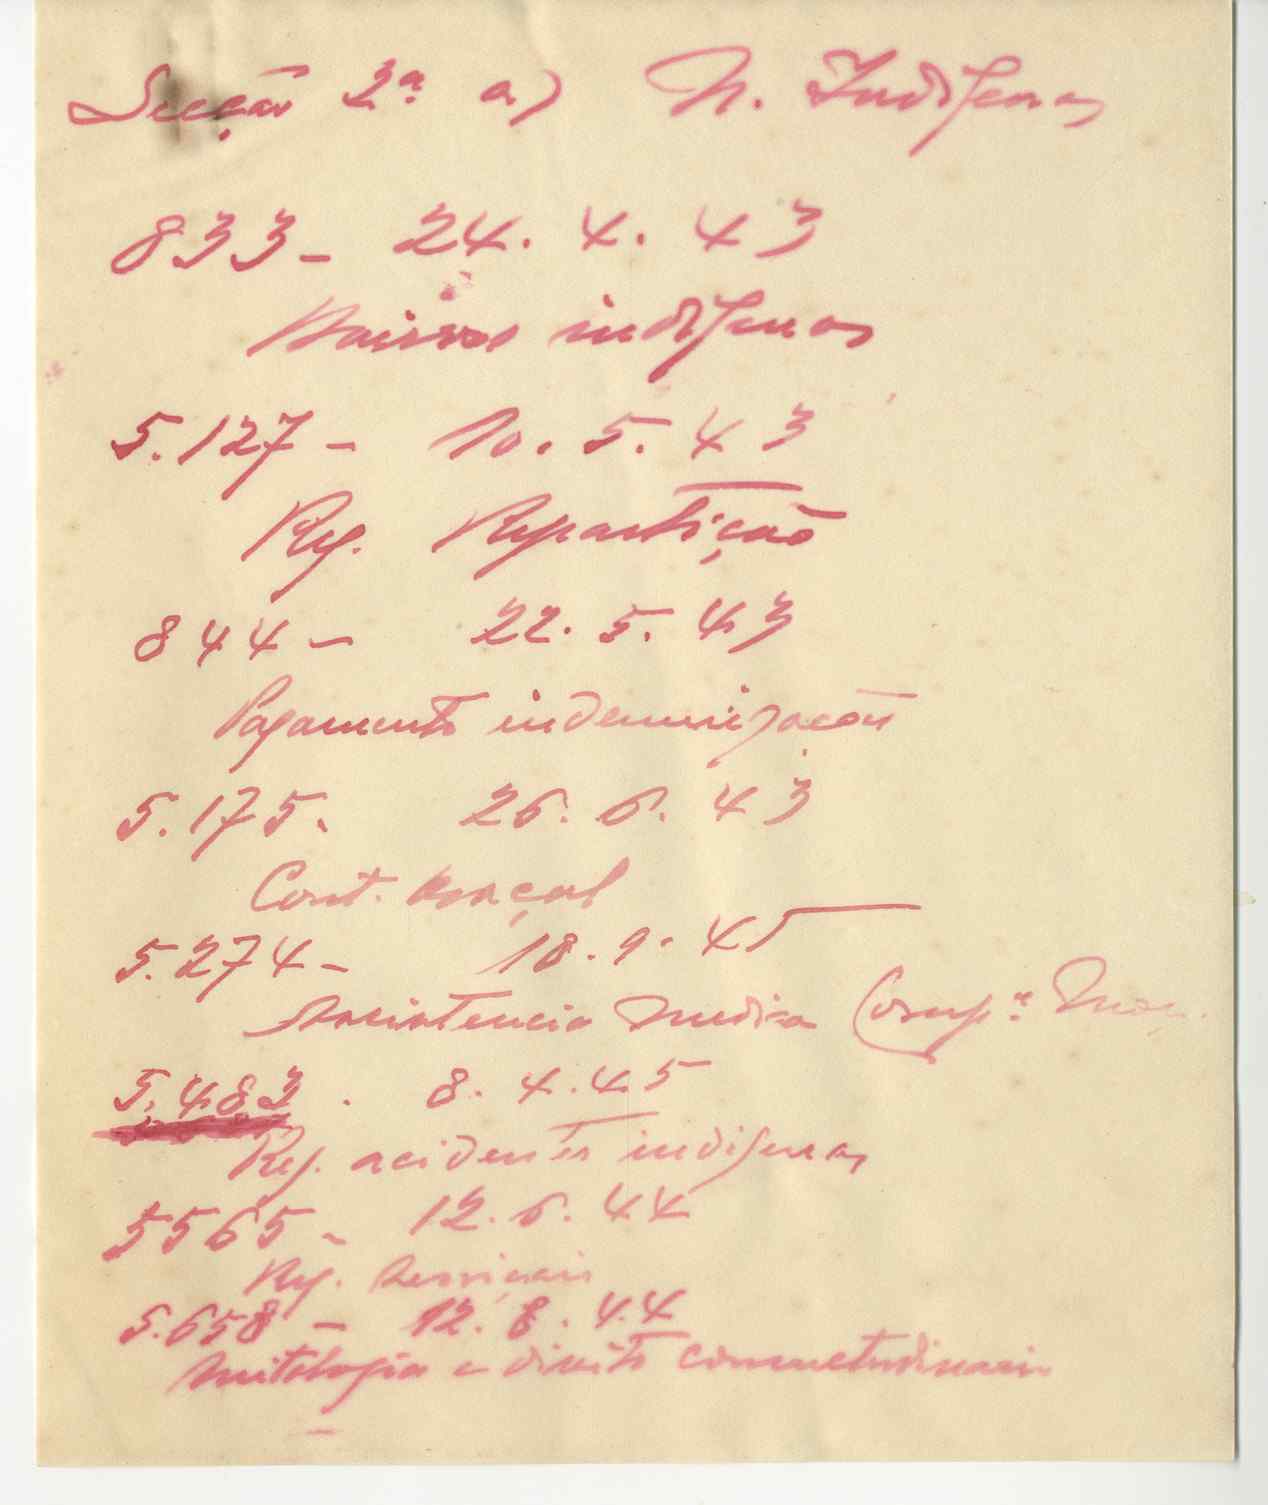 Secção 2ª a) N. Indígenas
833 - 24. 4. 43
Bairros indígenas
5.127 - 10. 5. 43
Reg. Repartição
844 - 22. 5. 43
Pagamento indemnização
5.175. 26. 6. 43
Cont. braçal
5.274 - 18. 9. 45
Assistencia medica Compª Moç.
5.483 . 8. 4. 45
Reg. acidentes indígenas
5565 - 12. 6. 44
Reg. serviçais
5.658 - 12. 8. 44
Mitologia e direito consuetudinario